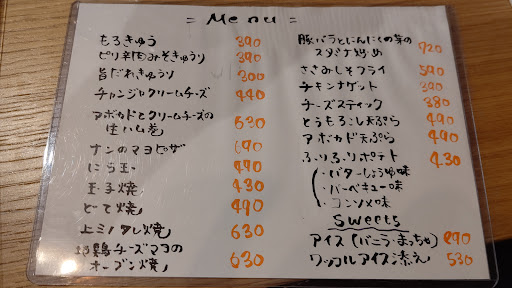 = Menu =
もろきゅう 390
ピリ辛肉みそきゅうり 390
旨だれきゅうり 300
チャンジャクリームチーズ 440
アボカドとクリームチーズの
生ハム巻 530
ナンのマヨピザ 690
にら玉 490
玉子焼 430
どて焼 490
上ミノタレ焼 630
地鶏チーズマヨの
オーブン焼 630
豚バラとにんにくの芽の
スタミナ炒め 720
ささみしそフライ 590
チキンナゲット 390
チーズスティック 380
とうもろこし天ぷら 490
アボカド天ぷら 490
ふりふりポテト 430
・バターしょうゆ味
・バーベキュー味
・コンソメ味
Sweets
アイス(バニラ・まっちゃ) 290
ワッフルアイス添え 530